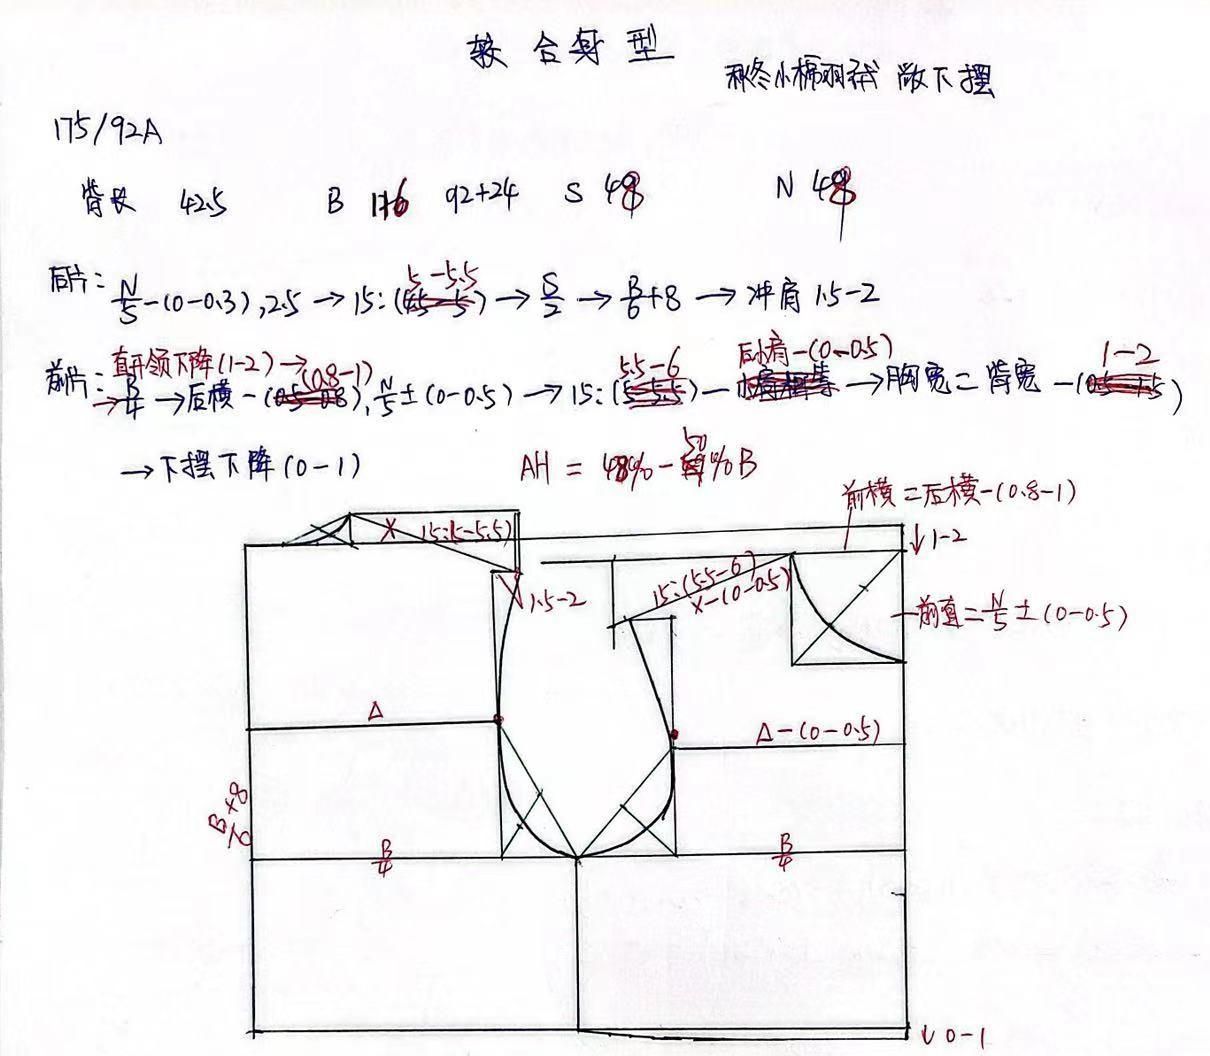 较合身型
秋冬小棉羽绒 散下摆
175/92A
背长 42.5 B 116 92+24 S 48 N 48
5-5.5
后片: N/5-(0-0.3), 2.5 → 15:(4.5-5) → S/2 → B/6+8 → 冲肩 1.5-2
直开领下降(1-2) → (0.8-1) 5.5-6 后小肩-(0-0.5) 1-2
前片: → B/4 → 后横-(0.5-0.8), N/5±(0-0.5) → 15:(5-5.5) → 胸宽=背宽-(0.5-1.5)
→ 下摆下降(0-1)
AH = 48%-50%B
前横=后横-(0.8-1)
X 15:(5-5.5)
↓1-2
15:(5.5-6)
X-(0-0.5)
1.5-2
前直=N/5±(0-0.5)
Δ
Δ-(0-0.5)
B/6+8
B/4
B/4
↓0-1